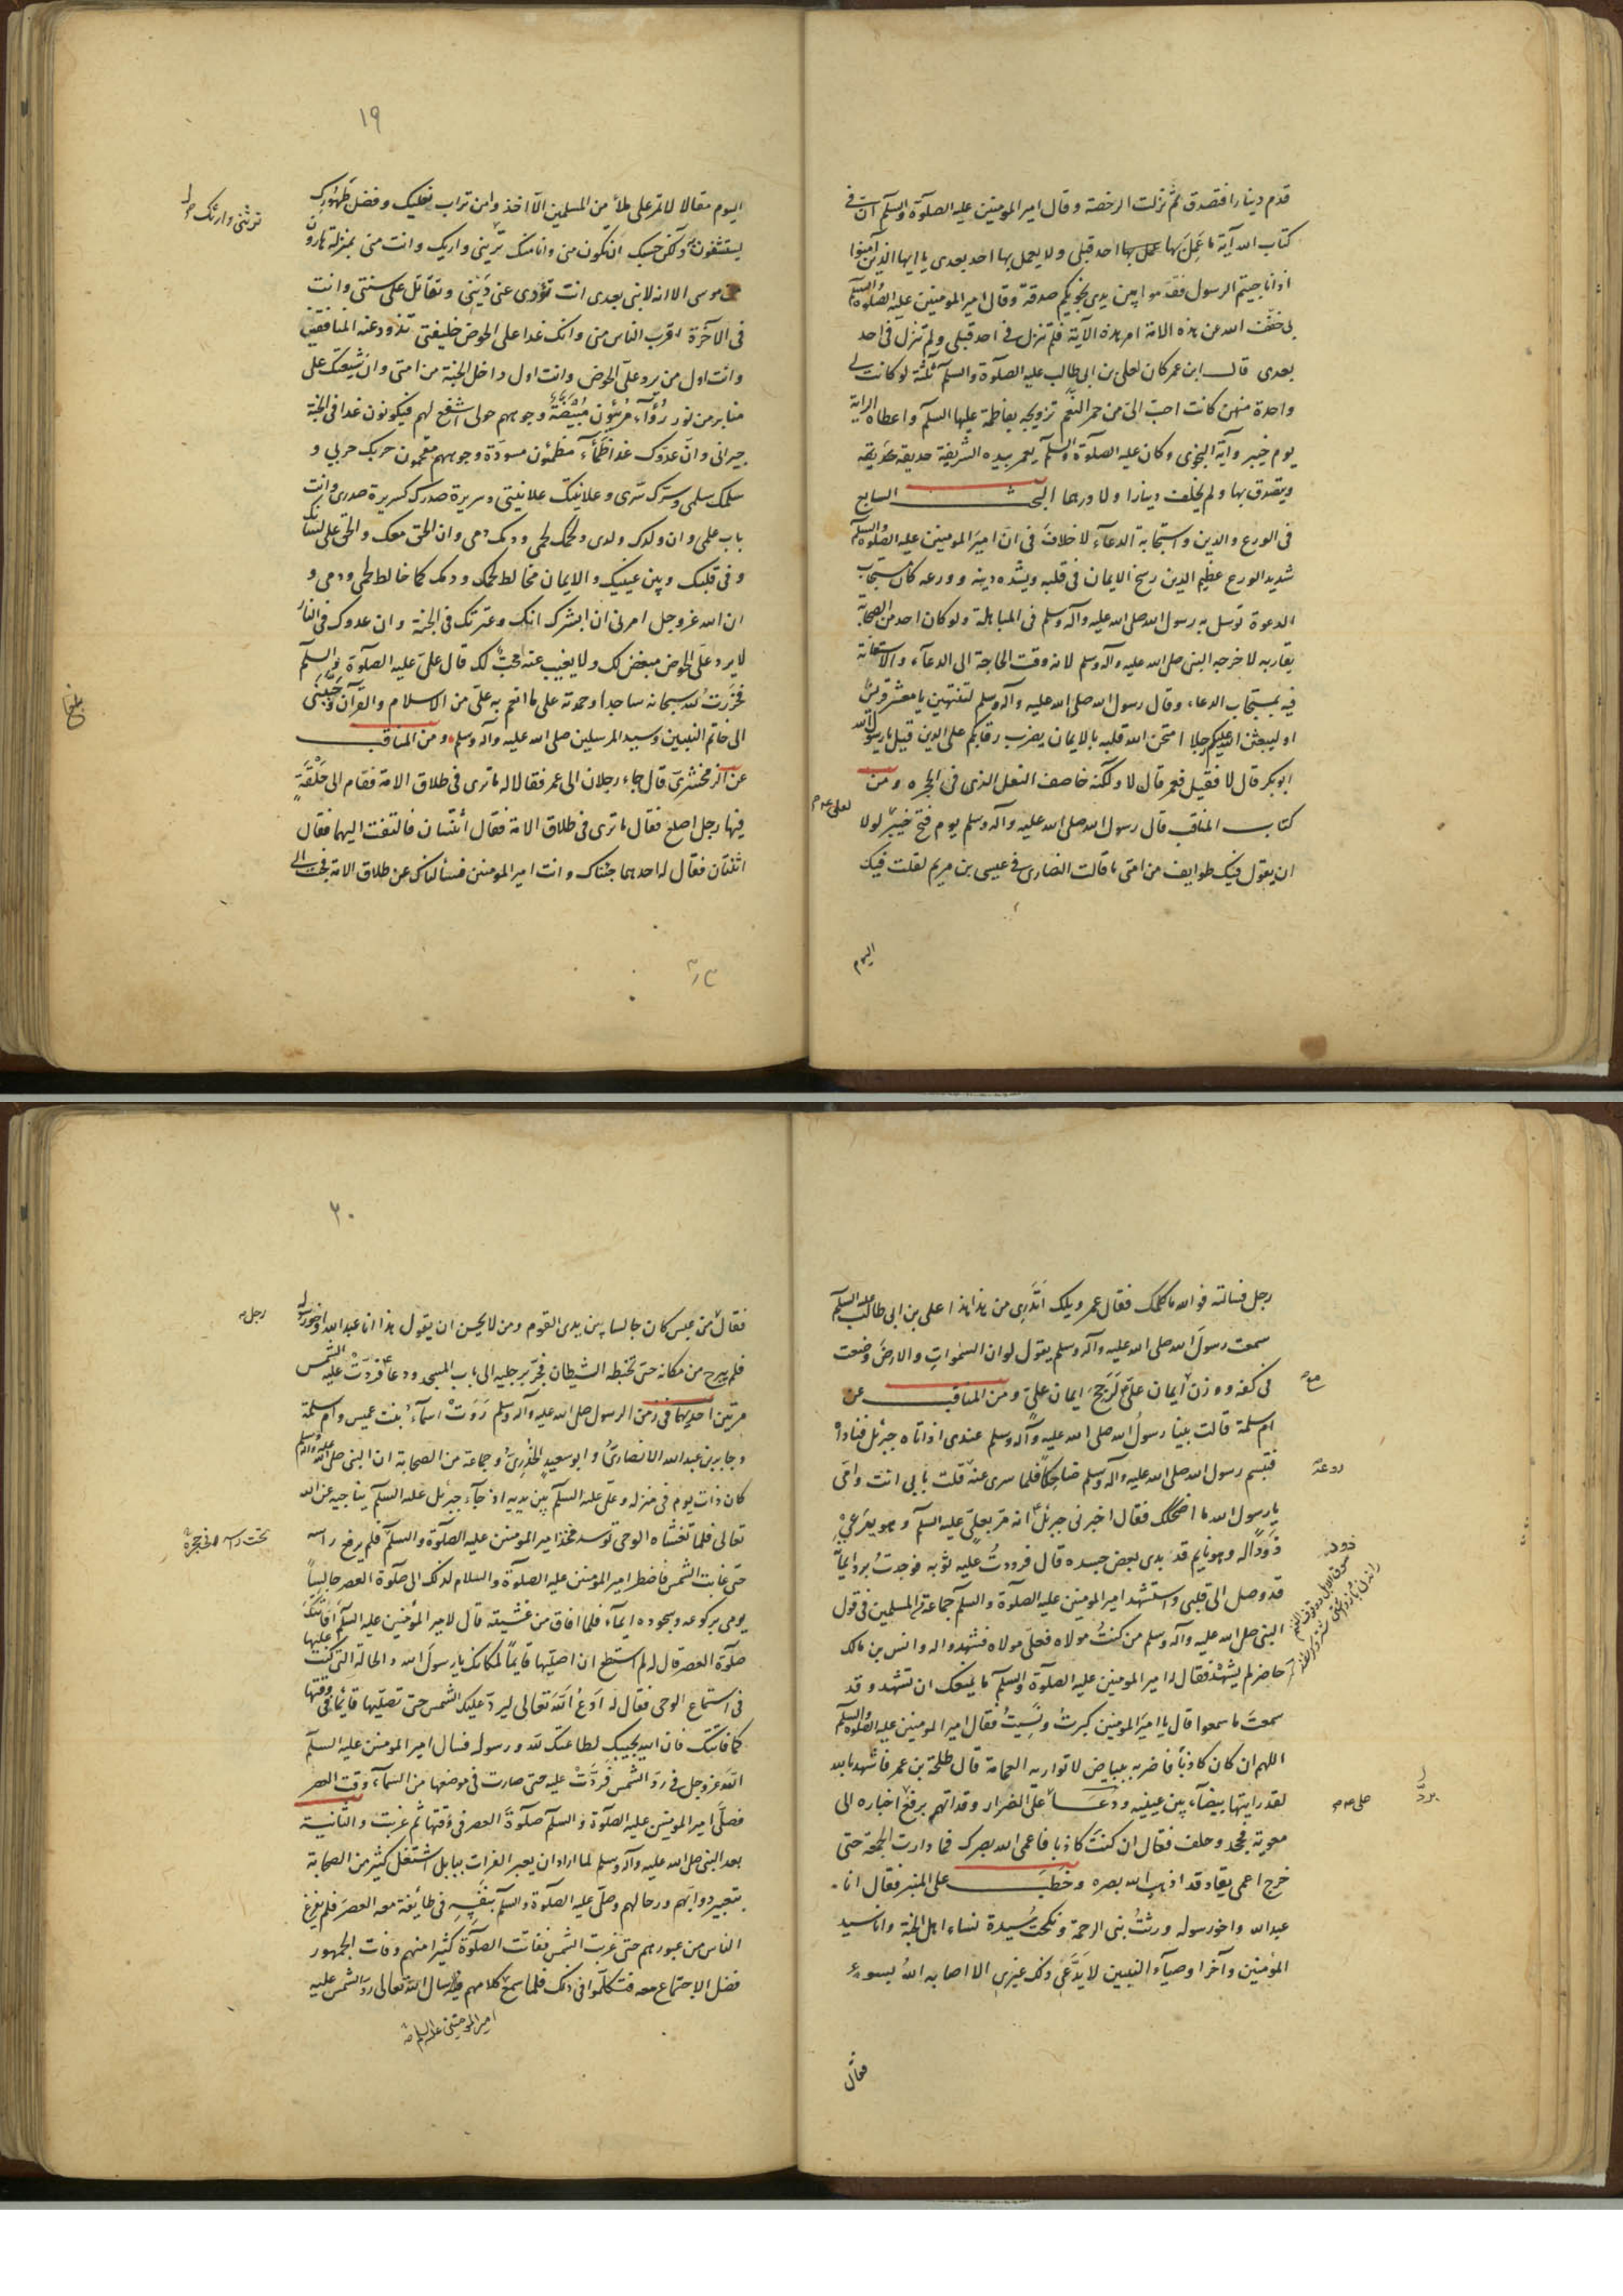 قدم دينارا فتصدق ثم نزلت الرخصة وقال امير المومنين عليه الصلوة والسلم ان فى
كتاب الله آية ما عمل بها احد قبلى ولا يعمل بها احد بعدى يا ايها الذين آمنوا
اذا ناجيتم الرسول فقدموا بين يدى نجويكم صدقة وقال امير المومنين عليه الصلوة والسلم
بى خفف الله عن هذه الامة امر هذه الآية فلم تنزل فى احد قبلى ولم تنزل فى احد
بعدى قال ابن عمر كان لعلى بن ابى طالب عليه الصلوة والسلم ثلثة لو كانت لى
واحدة منهن كانت احب الى من حمر النعم تزويجه بفاطمة عليها السلم واعطاه الراية
يوم خيبر وآية النجوى وكان عليه الصلوة والسلم يعمر بيده الشريفة حديقة حديقة
ويتصدق بها ولم يخلف دينارا ولا درهما البحث السابع
فى الورع والدين واستجابة الدعآء لا خلاف فى ان امير المومنين عليه الصلوة والسلم
شديد الورع عظيم الدين رسخ الايمان فى قلبه وبشدة دينه وورعه كان مستجاب
الدعوة توسل به رسول الله صلى الله عليه وآله وسلم فى المباهلة ولو كان احد من الصحابة
يقاربه لاخرجه النبى صلى الله عليه وآله وسلم لانه وقت الحاجة الى الدعآء والاستعانة
فيه بمستجاب الدعاء وقال رسول الله صلى الله عليه وآله وسلم لتنتهين يا معشر قريش
او ليبعثن الله عليكم رجلا امتحن الله قلبه بالايمان يضرب رقابكم على الدين قيل يا رسول الله
ابوبكر قال لا فقيل فعمر قال لا ولكنه خاصف النعل الذى فى الحجره ومن
كتاب المناقب قال رسول الله صلى الله عليه وآله وسلم يوم فتح خيبر لولا
لعلى عم
ان يقول فيك طوايف من امتى ما قالت النصارى فى عيسى بن مريم لقلت فيك
اليوم
١٩
اليوم مقالا لا تمر على ملأ من المسلمين الا اخذوا من تراب نعليك وفضل طهورك
ترثنى وارثك
يستشفون به ولكن حسبك ان تكون منى وانا منك ترينى واريك وانت منى بمنزلة هارون
من موسى الا انه لا نبى بعدى انت تؤدى عنى دينى وتقاتل على سنتى وانت
فى الآخرة اقرب الناس منى وانك غدا على الحوض خليفتى تذود عنه المنافقين
وانت اول من يرد على الحوض وانت اول داخل الجنة من امتى وان شيعتك على
منابر من نور رواء مرويون مبيضة وجوههم حولى اشفع لهم فيكونون غدا فى الجنة
جيرانى وان عدوك غدا ظمآء مظمئون مسودة وجوههم مقمحون حربك حربى و
سلمك سلمى وسرك سرى وعلانيتك علانيتى وسريرة صدرك كسريرة صدرى وانت
باب علمى وان ولدك ولدى ولحمك لحمى ودمك دمى وان الحق معك والحق على لسانك
وفى قلبك وبين عينيك والايمان مخالط لحمك ودمك كما خالط لحمى ودمى و
ان الله عز وجل امرنى ان ابشرك انك وعترتك فى الجنة وان عدوك فى النار
لا يرد على الحوض مبغض لك ولا يغيب عنه محب لك قال على عليه الصلوة والسلم
فخررت لله سبحانه ساجدا وحمدته على ما انعم به على من الاسلام والقرآن وحببنى
الى خاتم النبيين وسيد المرسلين صلى الله عليه وآله وسلم ومن المناقب
عن الزمخشرى قال جاء رجلان الى عمر فقالا له ما ترى فى طلاق الامة فقام الى حلقة
فيها رجل اصلع فقال ما ترى فى طلاق الامة فقال اثنتان فالتفت اليهما فقال
اثنتان فقال له احدهما جئناك وانت امير المومنين فسألناك عن طلاق الامة فجئت الى
رجل فسالته فوالله ما كلمك فقال عمر ويلك اتدرى من هذا هذا على بن ابى طالب عليه السلم
سمعت رسول الله صلى الله عليه وآله وسلم يقول لو ان السموات والارض وضعت
فى كفة ووزن ايمان على لرجح ايمان على ومن المناقب عن
ام سلمة قالت بينا رسول الله صلى الله عليه وآله وسلم عندى اذ اتاه جبرئل فناداه
فتبسم رسول الله صلى الله عليه وآله وسلم ضاحكا فلما سرى عنه قلت بابى انت وامى
يا رسول الله ما اضحكك فقال اخبرنى جبرئل انه مر بعلى عليه السلم وهو يرعى
ذودا له وهو نايم قد بدى بعض جسده قال فرددت عليه ثوبه فوجدت برد ايمانه
قد وصل الى قلبى واستشهد امير المومنين عليه الصلوة والسلم جماعة من المسلمين فى قول
النبى صلى الله عليه وآله وسلم من كنت مولاه فعلى مولاه فشهدوا له وانس بن مالك
حاضر لم يشهد فقال له امير المومنين عليه الصلوة والسلم ما يمنعك ان تشهد وقد
سمعت ما سمعوا قال يا امير المومنين كبرت ونسيت فقال امير المومنين عليه الصلوة والسلم
اللهم ان كان كاذبا فاضربه ببياض لا تواريه العمامة قال طلحة بن عمر فاشهد بالله
لقد رايتها بيضآء بين عينيه ودعا على الضرار وقد اتهم برفع اخباره الى
على عم
معوية فجحد وحلف فقال ان كنت كاذبا فاعمى الله بصرك فما دارت الجمعة حتى
خرج اعمى يقاد قد اذهب الله بصره وخطب على المنبر فقال انا
عبد الله واخو رسوله ورثت نبى الرحمة ونكحت سيدة نساء اهل الجنة وانا سيد
المؤمنين وآخر اوصيآء النبيين لا يدعى ذلك غيرى الا اصابه الله بسوء
فقال
٢٠
فقال من عبس كان جالسا بين يدى القوم ومن لا يحسن ان يقول هذا انا عبد الله واخو رسوله
رجل
فلم يبرح من مكانه حتى تخبطه الشيطان فجر برجليه الى باب المسجد ودعا فردت عليه الشمس
مرتين احديهما فى زمن الرسول صلى الله عليه وآله وسلم روت اسمآء بنت عميس وام سلمة
وجابر بن عبد الله الانصارى وابو سعيد الخدرى وجماعة من الصحابة ان النبى صلى الله عليه وآله وسلم
كان ذات يوم فى منزله وعلى عليه السلم بين يديه اذ جآء جبرئل عليه السلم يناجيه عن الله
تعالى فلما تغشاه الوحى توسد فخذ امير المومنين عليه الصلوة والسلم فلم يرفع راسه
حتى غابت الشمس فاضطر امير المومنين عليه الصلوة والسلام لذلك الى صلوة العصر جالسا
يومى بركوعه وسجوده ايمآء فلما افاق من غشيته قال لامير المؤمنين عليه السلم افاتتك
صلوة العصر قال له لم استطع ان اصليها قايما لمكانك يا رسول الله والحالة التى كنت عليها
فى استماع الوحى فقال له ادع الله تعالى ليرد عليك الشمس حتى تصليها قائما فى وقتها
كما فاتتك فان الله يجيبك لطاعتك لله ورسوله فسال امير المومنين عليه السلم
الله عز وجل فى رد الشمس فردت عليه حتى صارت فى موضعها من السمآء وقت العصر
فصلى امير المومنين عليه الصلوة والسلم صلوة العصر فى وقتها ثم غربت والثانية
بعد النبى صلى الله عليه وآله وسلم لما اراد ان يعبر الفرات ببابل اشتغل كثير من الصحابة
بتعبير دوابهم ورحالهم وصلى عليه الصلوة والسلم بنفسه فى طائفة معه العصر فلم يفرغ
الناس من عبورهم حتى غربت الشمس ففاتت الصلوة كثيرا منهم وفات الجمهور
فضل الاجتماع معه فتكلموا فى ذلك فلما سمع كلامهم فيه سال الله تعالى رد الشمس عليه
امير المومنين عليه السلم